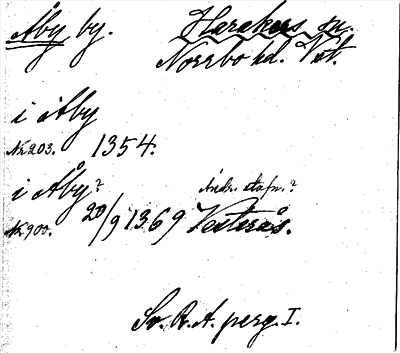 Åby by. Harakers sn.
Norrbo hd. Vstl.
i Aby
Nr 203. 1354.
i Åby? Ändr. stafn.?
Nr 900. 20/9 1369 Vesterås.
Sv. R. A. perg. I.